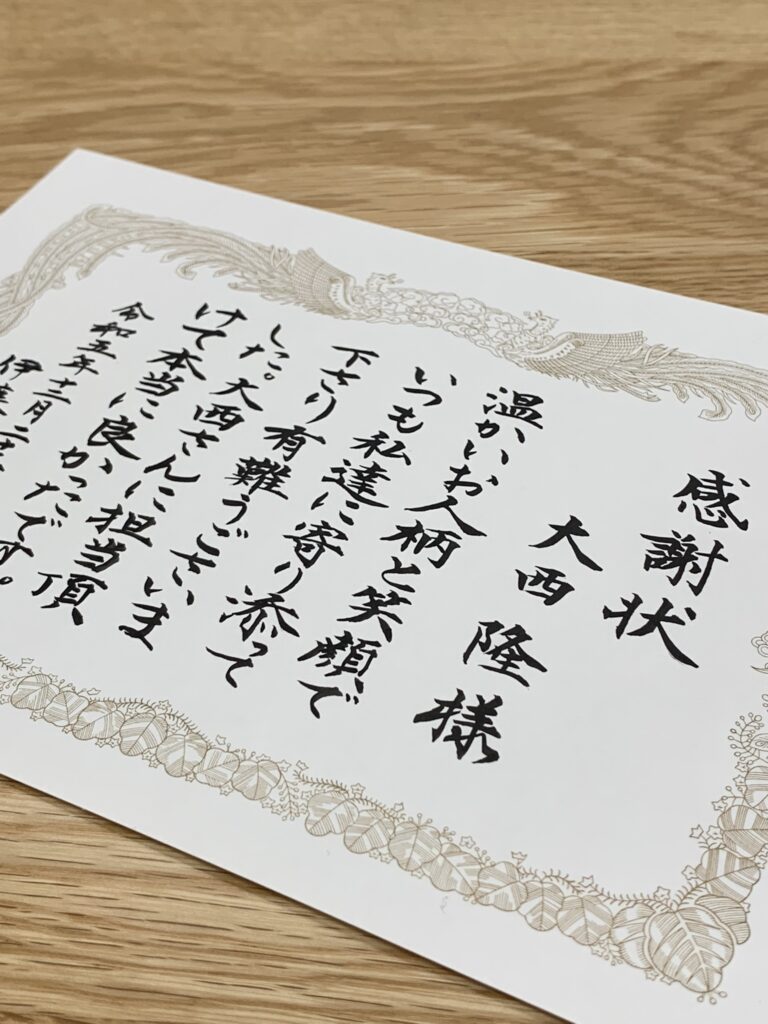 感謝状
大西 隆様
温かいお人柄と笑顔で
いつも私達に寄り添って
下さり有難うございま
した。大西さんに担当頂
けて本当に良かったです。
令和五年十二月二十
伊達